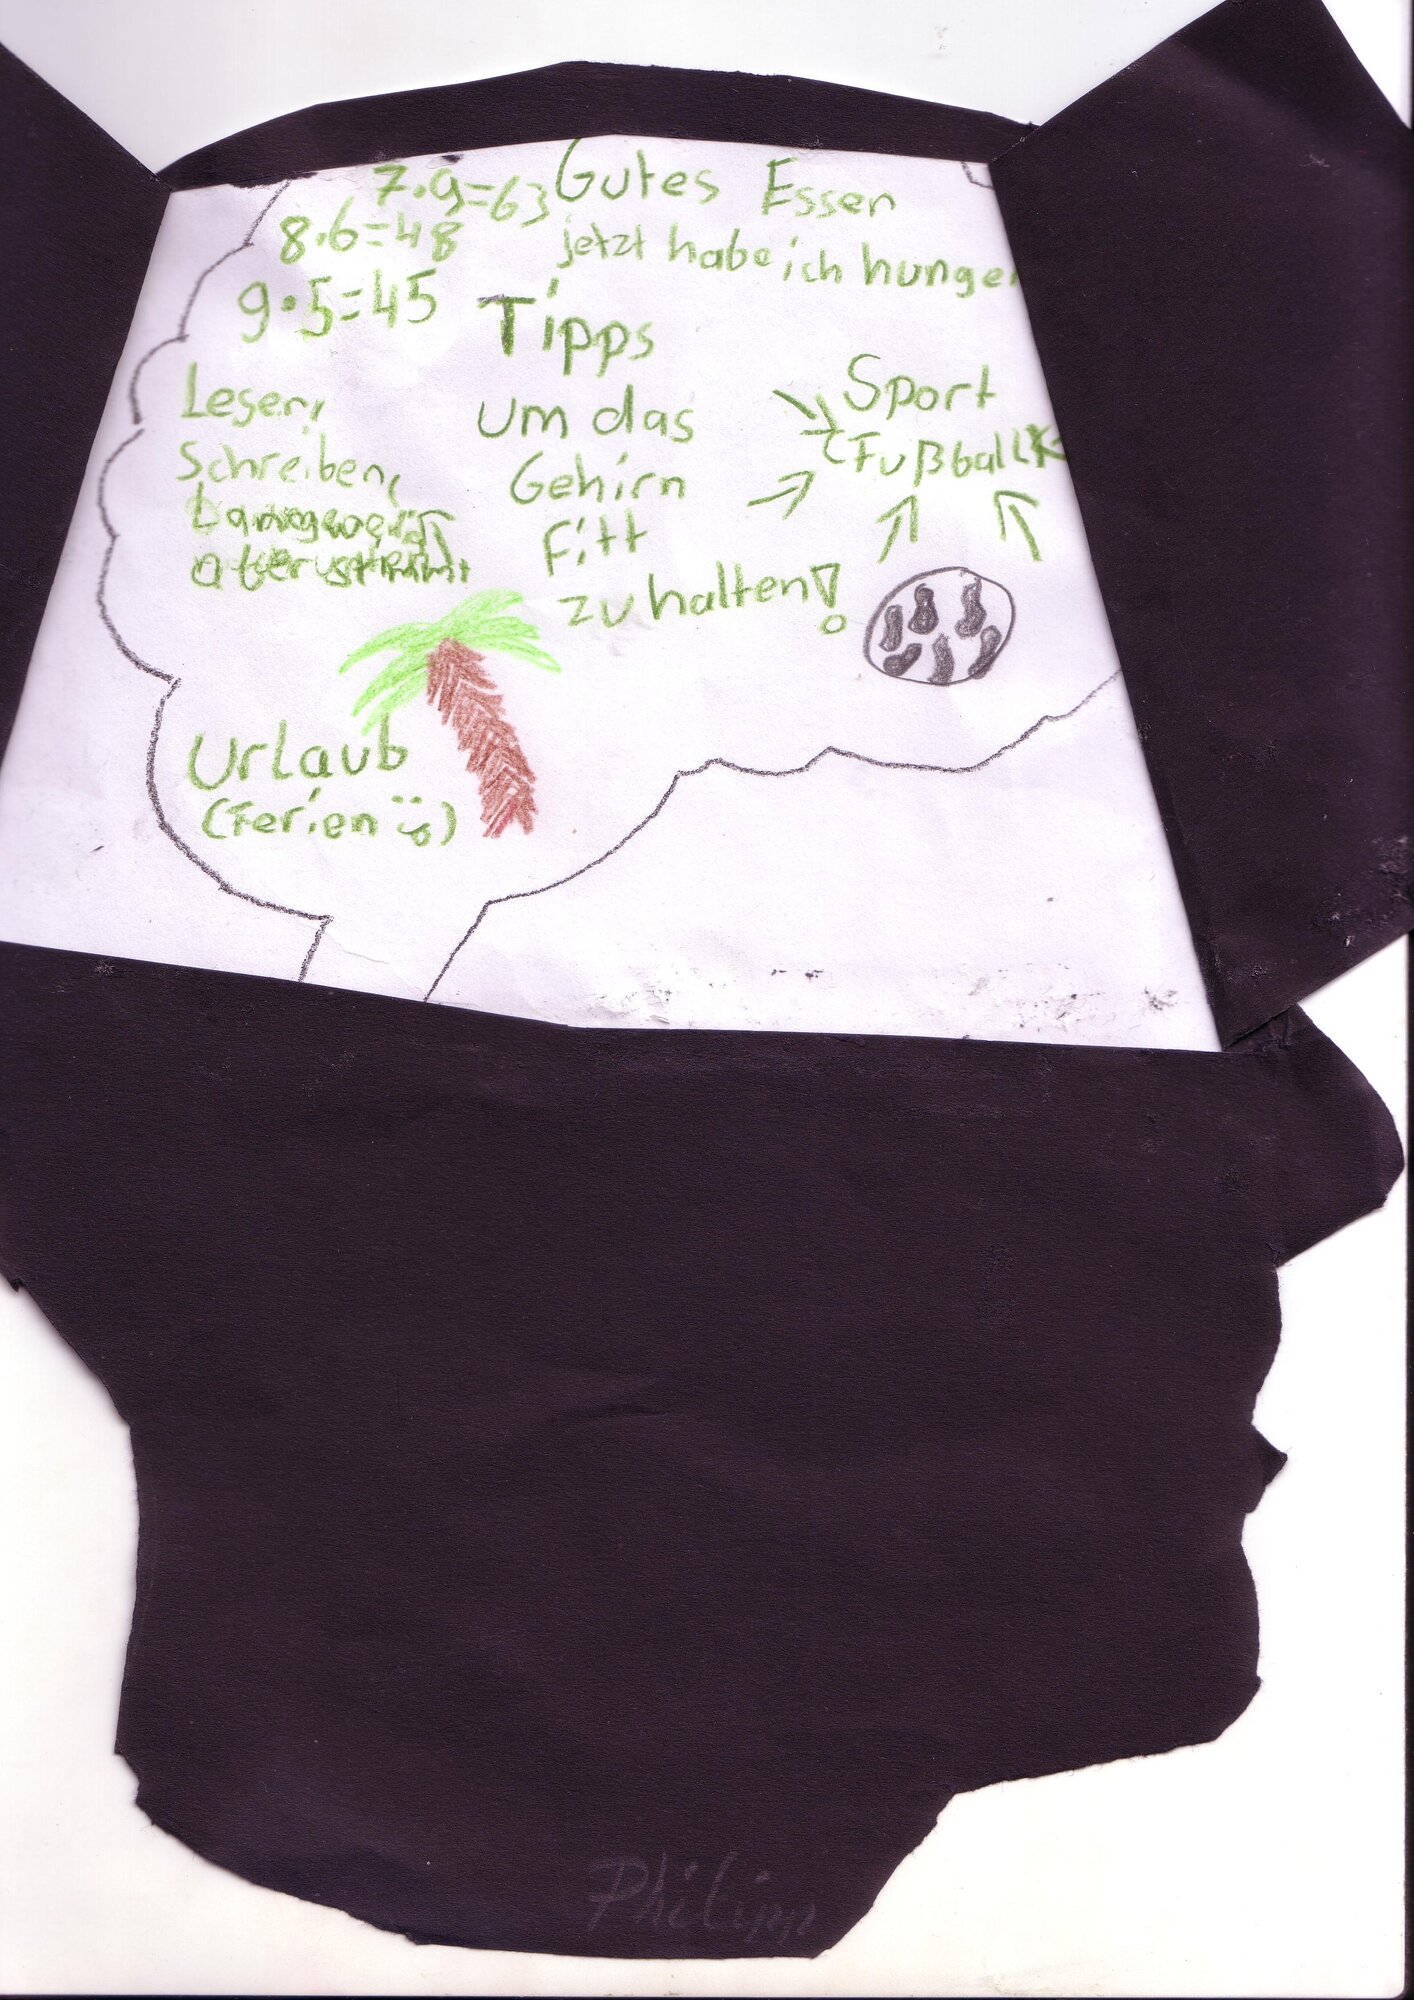 7·9=63
8·6=48
9·5=45
Gutes Essen
jetzt habe ich hunger
Tipps
um das
Gehirn
Fitt
zu halten!
Lesen,
Schreiben,
Sport
(Fußball)
Urlaub
(Ferien)
Philipp